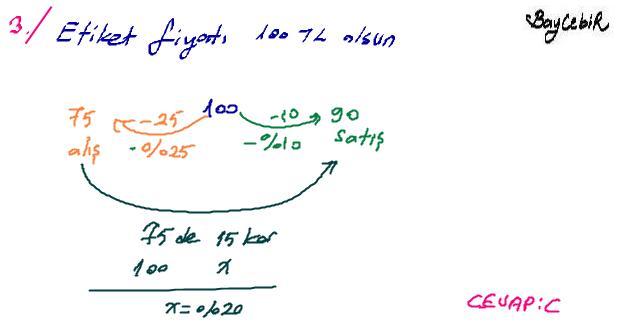 BayCebir
3./ Etiket fiyatı 100 TL olsun
75 -25 100 -10 90
alış -%25 -%10 satış
75 de 15 kar
100 x
x=%20
CEVAP:C